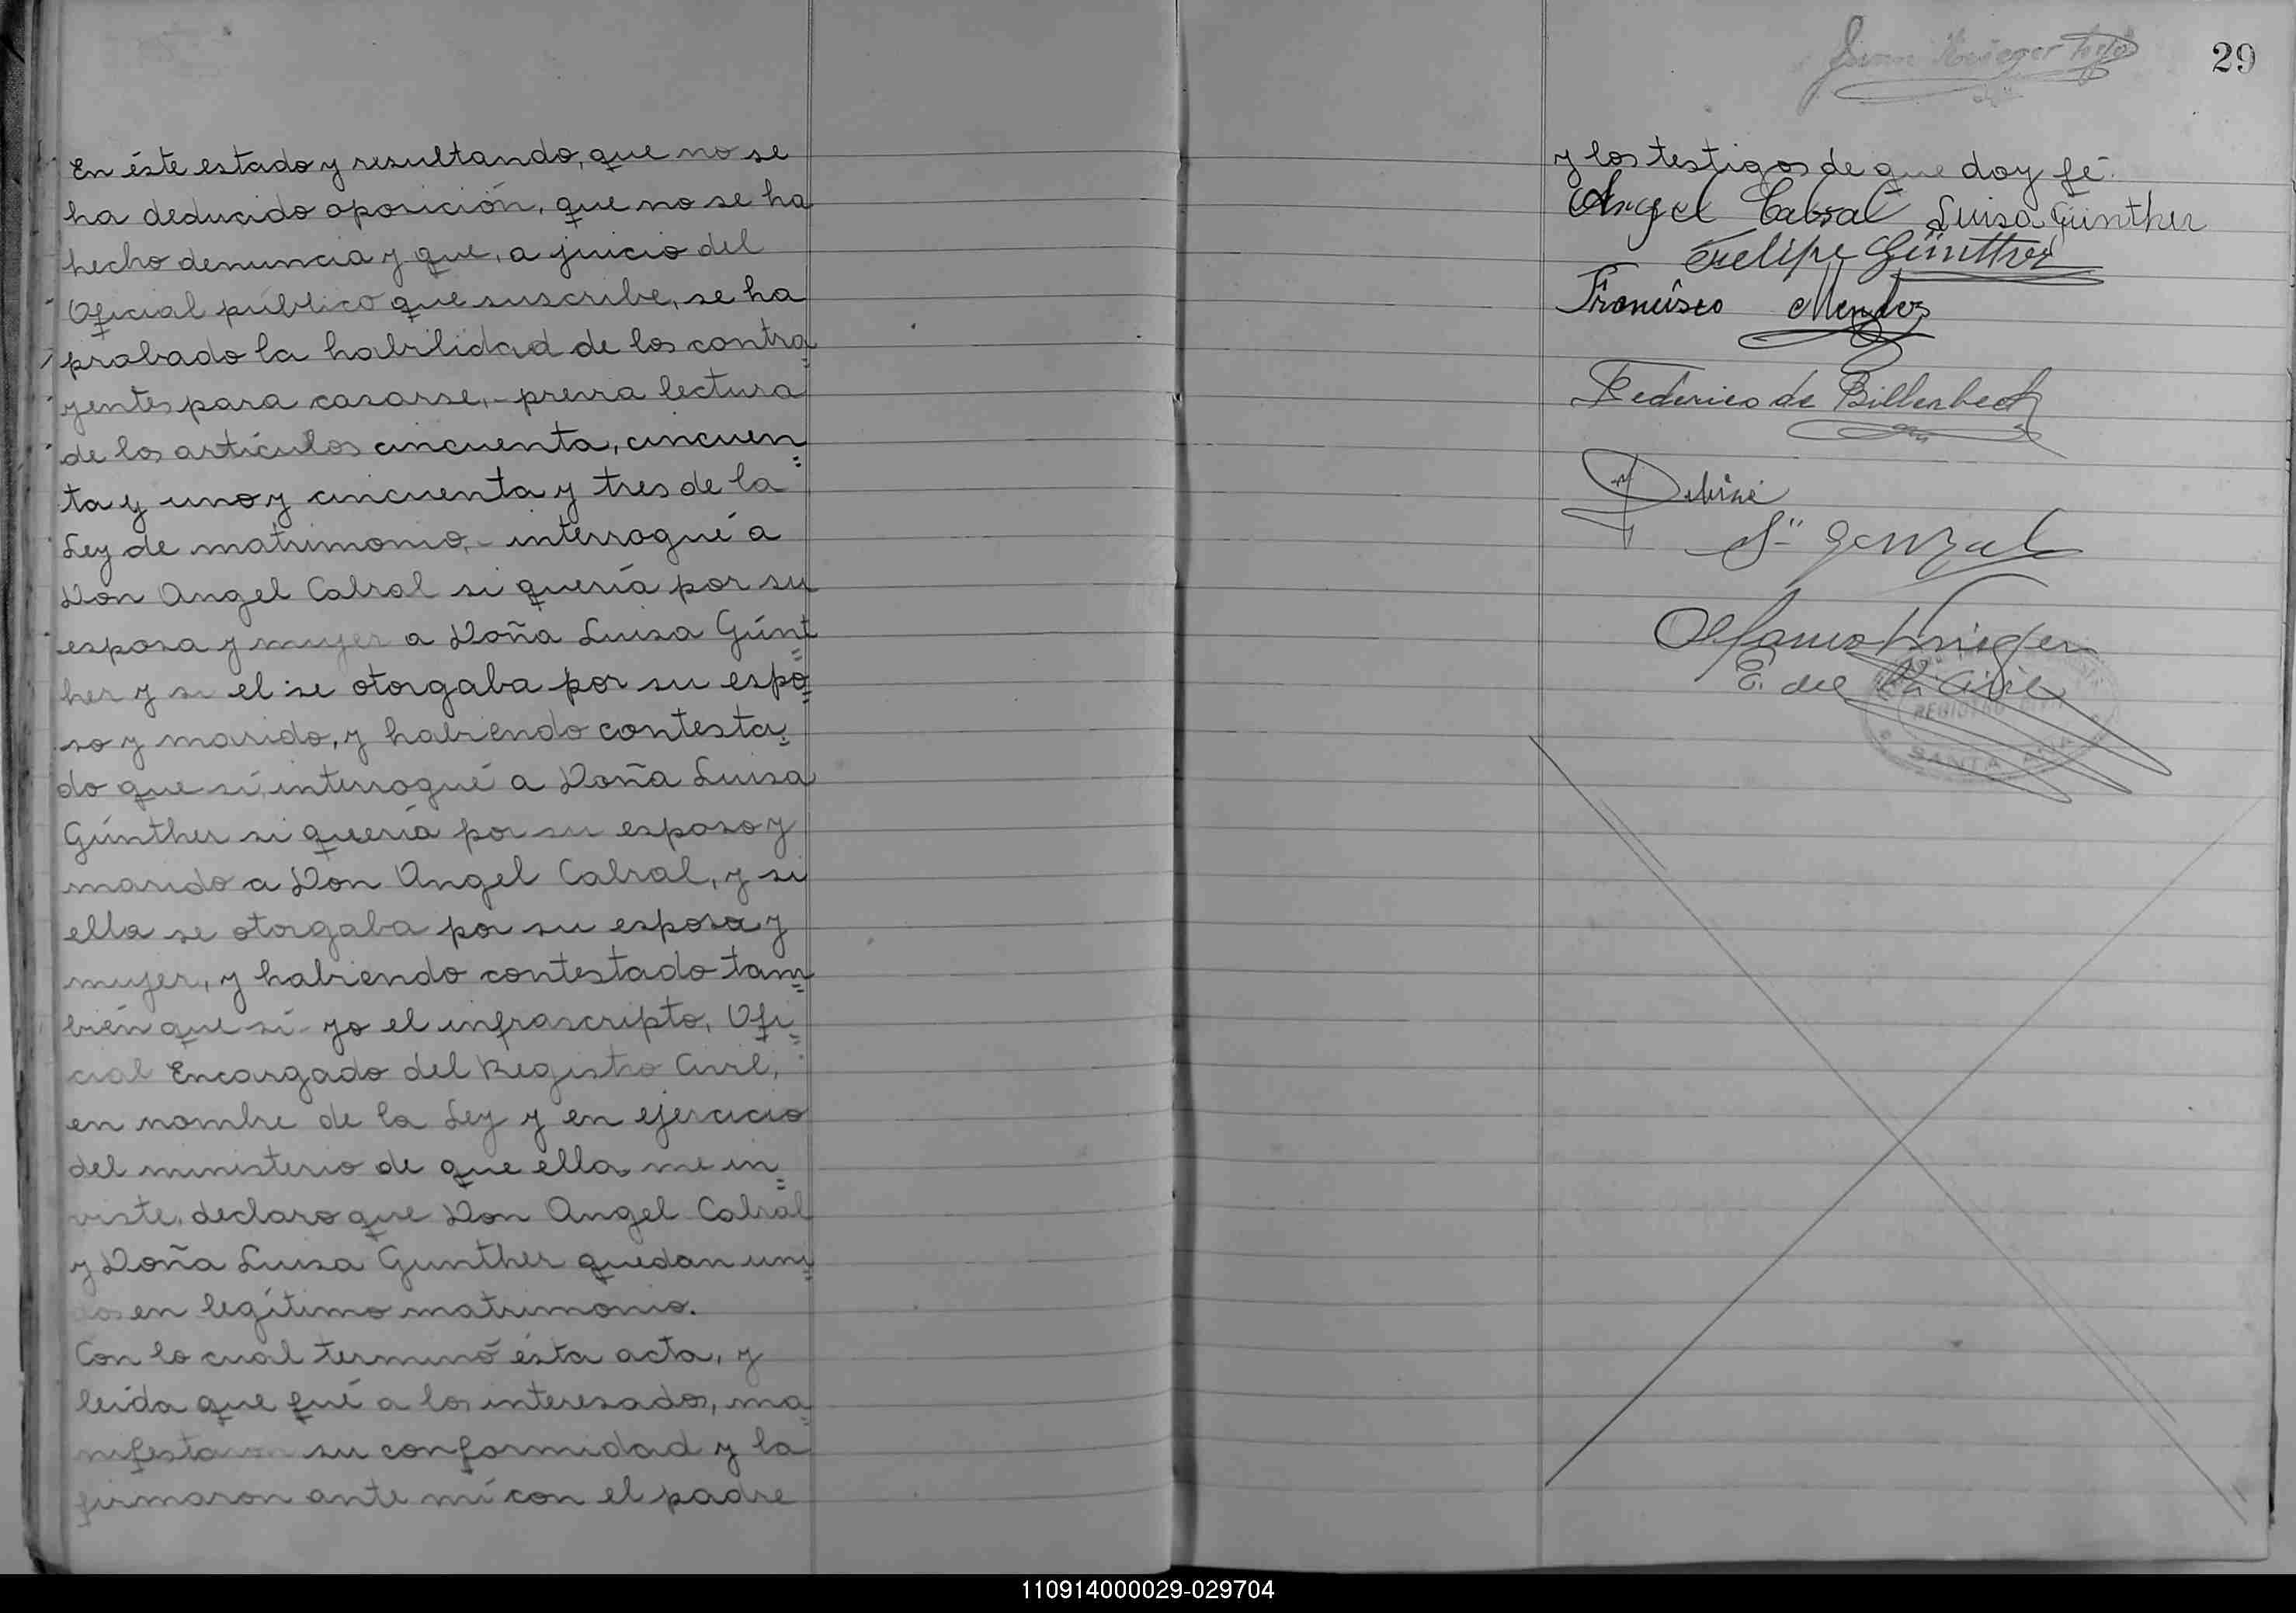 En éste estado y resultando, que no se
ha deducido oposición, que no se ha
hecho denuncia y que, a juicio del
Oficial público que suscribe, se ha
probado la habilidad de los contra=
yentes para casarse,- previa lectura
de los artículos cincuenta, cincuen=
ta y uno y cincuenta y tres de la
Ley de matrimonio,- interrogué a
Don Angel Cabral si quería por su
esposa y mujer a Doña Luisa Günt=
her y si el se otorgaba por su espo=
so y marido, y habiendo contesta=
do que sí, interrogué a Doña Luisa
Günther si quería por su esposo y
marido a Don Angel Cabral, y si
ella se otorgaba por su esposa y
mujer, y habiendo contestado tam=
bién que sí- yo el infrascripto, Ofi=
cial Encargado del Registro Civil,
en nombre de la Ley y en ejercicio
del ministerio de que ella me in=
viste, declaro que Don Angel Cabral
y Doña Luisa Gunther quedan uni=
dos en legítimo matrimonio.
Con lo cual terminó ésta acta, y
leída que fué a los interesados, ma=
nifestaron su conformidad y la
firmaron ante mí con el padre
29
y los testigos de que doy fé.
Angel Cabral Luisa Günther
Felipe Günther
Francisco Mendez
Federico de Billerbeck
Krieger
E. del R. Civil
REGISTRO CIVIL
SANTA ANA
110914000029-029704